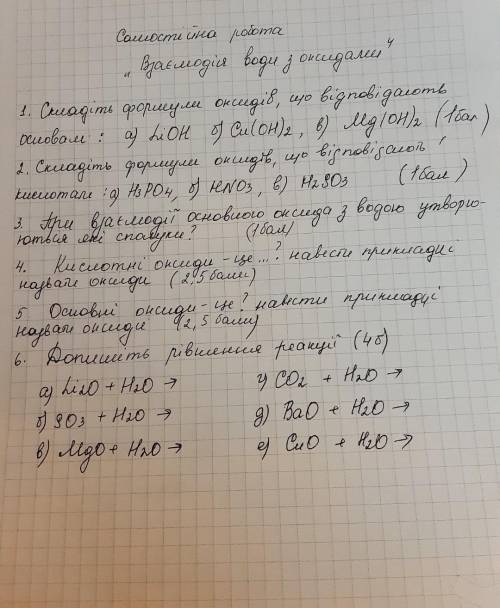 Самостійна робота
„Взаємодія води з оксидами"
1. Складіть формули оксидів, що відповідають
основам: а) LiOH б) Cu(OH)2, в) Mg(OH)2 (1бал)
2. Складіть формули оксидів, що відповідають
кислотам: а) H3PO4, б) HNO3, в) H2SO3 (1бал)
3. При взаємодії основного оксида з водою утворю-
ються які сполуки? (1бал)
4. Кислотні оксиди - це ...? навести приклади і
назвати оксиди (2,5 бали)
5 Основні оксиди - це? навести приклади і
назвати оксиди (2,5 бали)
6. Допишіть рівняння реакції (4б)
а) Li2O + H2O → г) CO2 + H2O →
б) SO3 + H2O → д) BaO + H2O →
в) MgO + H2O → е) CuO + H2O →